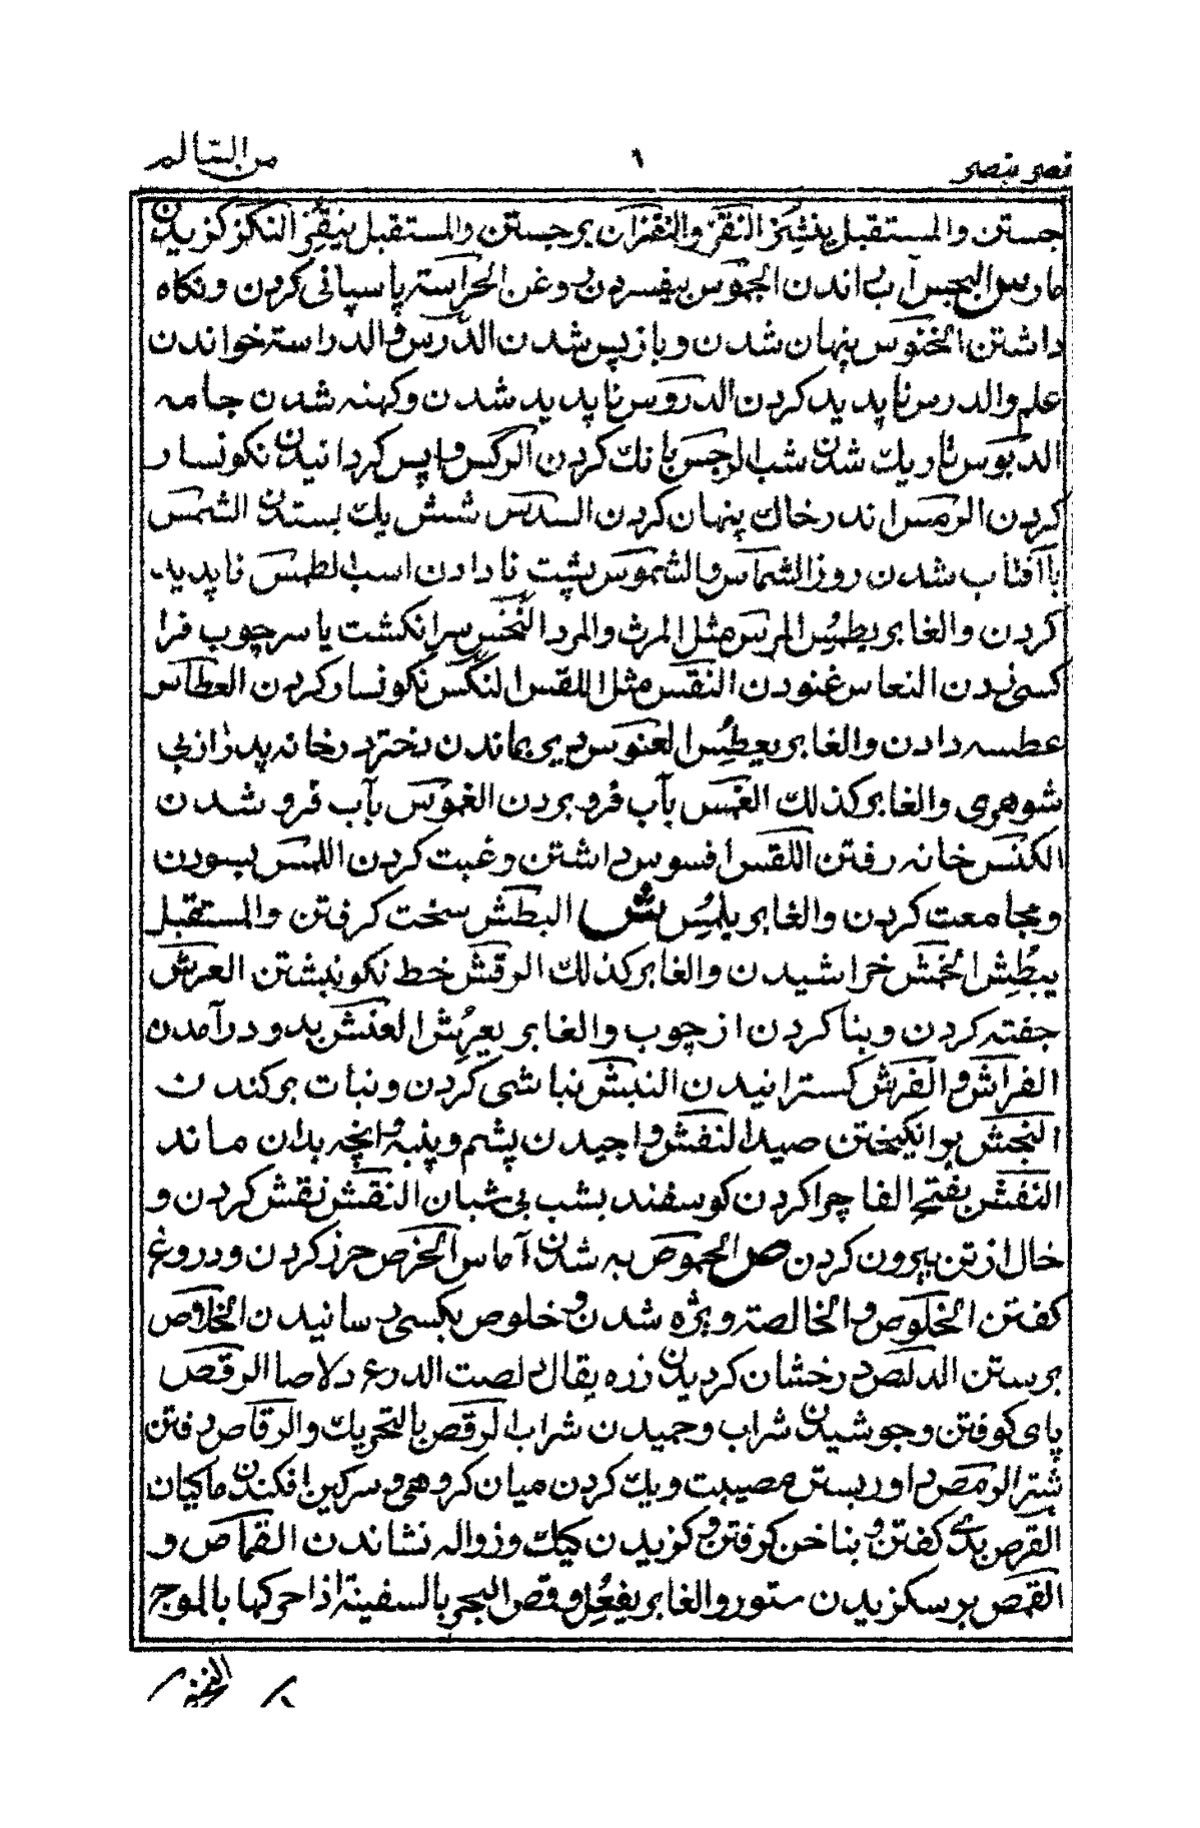 نصر ینصر ٦ من السّالم
جستن والمستقبل ینشِز النقز والنقزان برجستن والمستقبل ینقُز النکز کزیدن
مار س البجس آب راندن الجموس بیفسردن روغن الحراسة پاسبانی کردن ونکاه
داشتن الخنوس پنهان شدن وبازپس شدن الدرس والدراسة خواندن
علم والدرس ناپدید کردن الدروس ناپدید شدن وکهنه شدن جامه
الدبوس تاریك شدن شب الرجس بانك کردن الرکس واپس کردانیدن نکونسار
کردن الرمس اندر خاك پنهان کردن السدس شش یك بستدن الشمس
باآفتاب شدن روز الشماس والشموس پشت نادادن اسب الطمس ناپدید
کردن والغابر یطمِس المرس مثل المرث والمرد النخس سر انکشت یا سر چوب فرا
کسی زدن النعاس غنودن النقس مثل اللقس النکس نکونسار کردن العطاس
عطسه دادن والغابر یعطِس العنوس دیر بماندن دختر در خانه پدر از بی
شوهری والغابر کذلك الغمس بآب فرو بردن الغموس بآب فرو شدن
الکنس خانه رفتن اللقس افسوس داشتن وغیبت کردن اللمس بسودن
ومجامعت کردن والغابر یلمِس ش البطش سخت کرفتن والمستقبل
یبطِش الخمش خراشیدن والغابر کذلك الرقش خط نکو نبشتن العرش
جفته کردن وبنا کردن از چوب والغابر یعرِش العنش بدو در آمدن
الفراش والفرش کسترانیدن النبش نباشی کردن ونبات برکندن
النجش برانکیختن صید النفش واجیدن پشم وپنبه وانچه بدان ماند
النفش بفتح الفا چرا کردن کوسفند بشب بی شبان النقش نقش کردن و
خال از تن بیرون کردن ص الحموص به شدن آماس الخرص حرز کردن ودروغ
کفتن الخلوص والخالصة ویژه شدن وخلوص بکسی رسانیدن الخلاوص
برستن الدلص درخشان کردیدن زره یقال دلصت الدرع دلاصا الرقص
پای کوفتن وجوشیدن شراب وحمیدن شراب الرقص بالتحریك والرقاص رفتن
شتر الرمص داوربستن مصیبت ونیك کردن میان کروهی وسرکین افکندن ماکیان
القرص بدی کفتن وبناخن کرفتن وکزیدن کیك وزواله نشاندن القماص و
القمص برسکزیدن ستور والغابر یفعُل وقمص البحر بالسفینة اذا حرکها بالموج